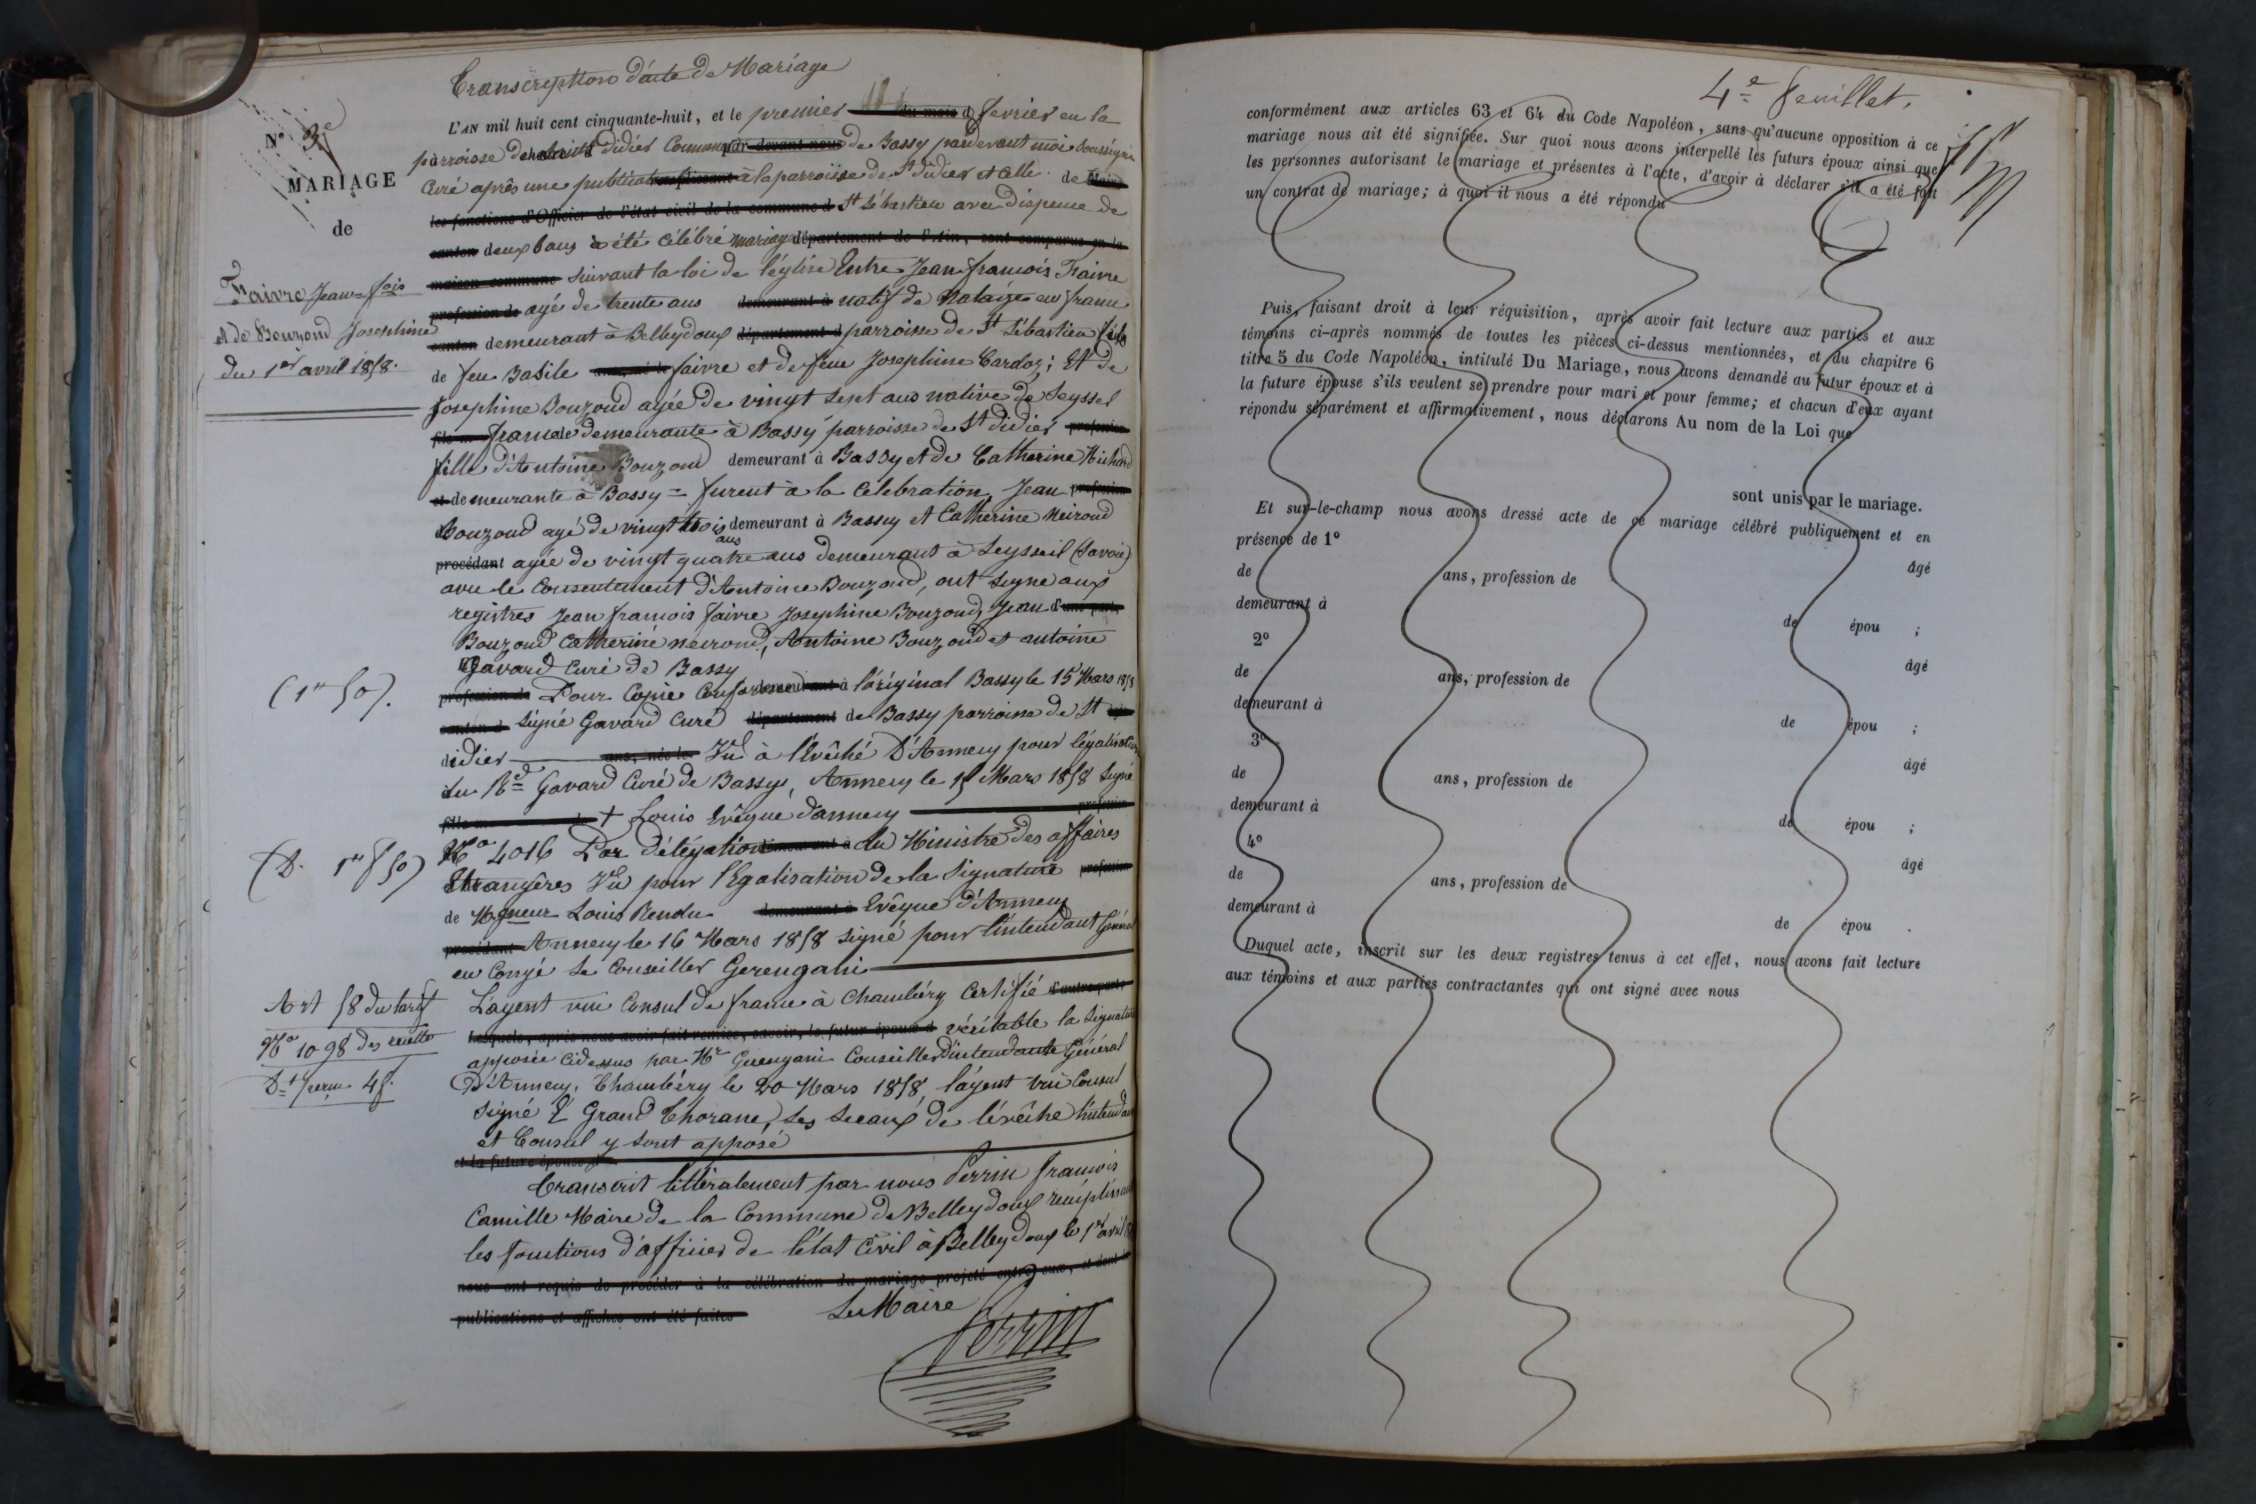 Transcription d'acte de Mariage
L'AN mil huit cent cinquante-huit, et le premier du mois d fevrier en la
parroisse de saint didier Commune par-devant nous de Bassy pardevant moi soussigné
Curé après une publication à la parroisse de St didier et celle de
les fonctions d'Officier de l'état civil de la commune d St Sébastien avec dispense de
canton deux bans a été célébré mariage département de l'Ain, sont comparus en la
maison commune suivant la loi de l'église Entre Jean francois Faivre
profession de agé de trente ans demeurant à natif de en france
canton demeurant à Belleydoux département d parroisse de St Sébastien fils
de feu Basile faivre et de feue Josephine Cardoz ; Et de
Josephine Bouzond agée de vingt sept ans native de Seyssel
france demeurante à Bassy parroisse de St didier profession
fille d'Antoine Bouzond demeurant à Bassy et de Catherine Michard
et demeurante à Bassy = furent à la célébration, Jean profession
Bouzond agé de vingt trois ans demeurant à Bassy et Catherine Neirond
procédant agée de vingt quatre ans demeurant à Seysseil (Savoie)
avec le Consentement d'Antoine Bouzond, ont signé aux
registres Jean francois faivre Josephine Bouzond, Jean d'une part,
Bouzond Catherine neirond, Antoine Bouzond et antoine
Gavard Curé de Bassy
profession de Pour Copie Conforme à l'original Bassy le 15 Mars 1858
canton d signé Gavard Curé département de Bassy parroisse de St
didier ans, né le Vu à l'Evêché D'Annecy pour légalisation
du Rd Gavard Curé de Bassy, Annecy le 15 Mars 1858 Signé
+ Louis Evêque d'annecy profession
No 4016 Par Délégation du Ministre des affaires
Etrangères Vu pour légalisation de la Signature profession
de Mgneur Louis Rendu demeurant à Evêque d'Annecy
procédant Annecy le 16 Mars 1858 signé pour l'intendant Général
en Congé Le Conseiller Gerengani
L'agent vice Consul de france à Chambéry Certifié d'autre part,
Lesquels, après nous avoir fait remise, savoir, le futur époux d véritable la Signature
apposée cidessus par Mr Conseiller d'intendante Général
D'Annecy, Chambéry le 20 Mars 1858, l'agent vice Consul
signé Grand Thorane, Les Sceaux de l'évêché l'intendance
et Consul y sont apposé
et la future épouse d
Transcrit littéralement par nous Perrin francois
Camille Maire de la Commune de Belleydoux remplissant
les fonctions d'officier de l'état Civil à Belleydoux le 1er avril
nous ont requis de procéder à la célébration du mariage projeté entre eux, et dont les
publications et affiches ont été faites Le Maire
Perrin
No 3e
MARIAGE
de
Faivre Jean = fois
et de Bouzond Josephine
du 1er avril 1858.
(1er 50).
(D. 1er f 50)
Art 58 du tarif
No 1098 des recettes
4e feuillet.
conformément aux articles 63 et 64 du Code Napoléon, sans qu'aucune opposition à ce
mariage nous ait été signifiée. Sur quoi nous avons interpellé les futurs époux ainsi que
les personnes autorisant le mariage et présentes à l'acte, d'avoir à déclarer s'il a été fait
un contrat de mariage ; à quoi il nous a été répondu
Puis, faisant droit à leur réquisition, après avoir fait lecture aux parties et aux
témoins ci-après nommés de toutes les pièces ci-dessus mentionnées, et du chapitre 6
titre 5 du Code Napoléon, intitulé Du Mariage, nous avons demandé au futur époux et à
la future épouse s'ils veulent se prendre pour mari et pour femme ; et chacun d'eux ayant
répondu séparément et affirmativement, nous déclarons Au nom de la Loi que
sont unis par le mariage.
Et sur-le-champ nous avons dressé acte de ce mariage célébré publiquement et en
présence de 1o
âgé
de ans, profession de
demeurant à
de épou ;
2o
âgé
de ans, profession de
demeurant à
de épou ;
3o
âgé
de ans, profession de
demeurant à
de épou ;
4o
âgé
de ans, profession de
demeurant à
de épou .
Duquel acte, inscrit sur les deux registres tenus à cet effet, nous avons fait lecture
aux témoins et aux parties contractantes qui ont signé avec nous